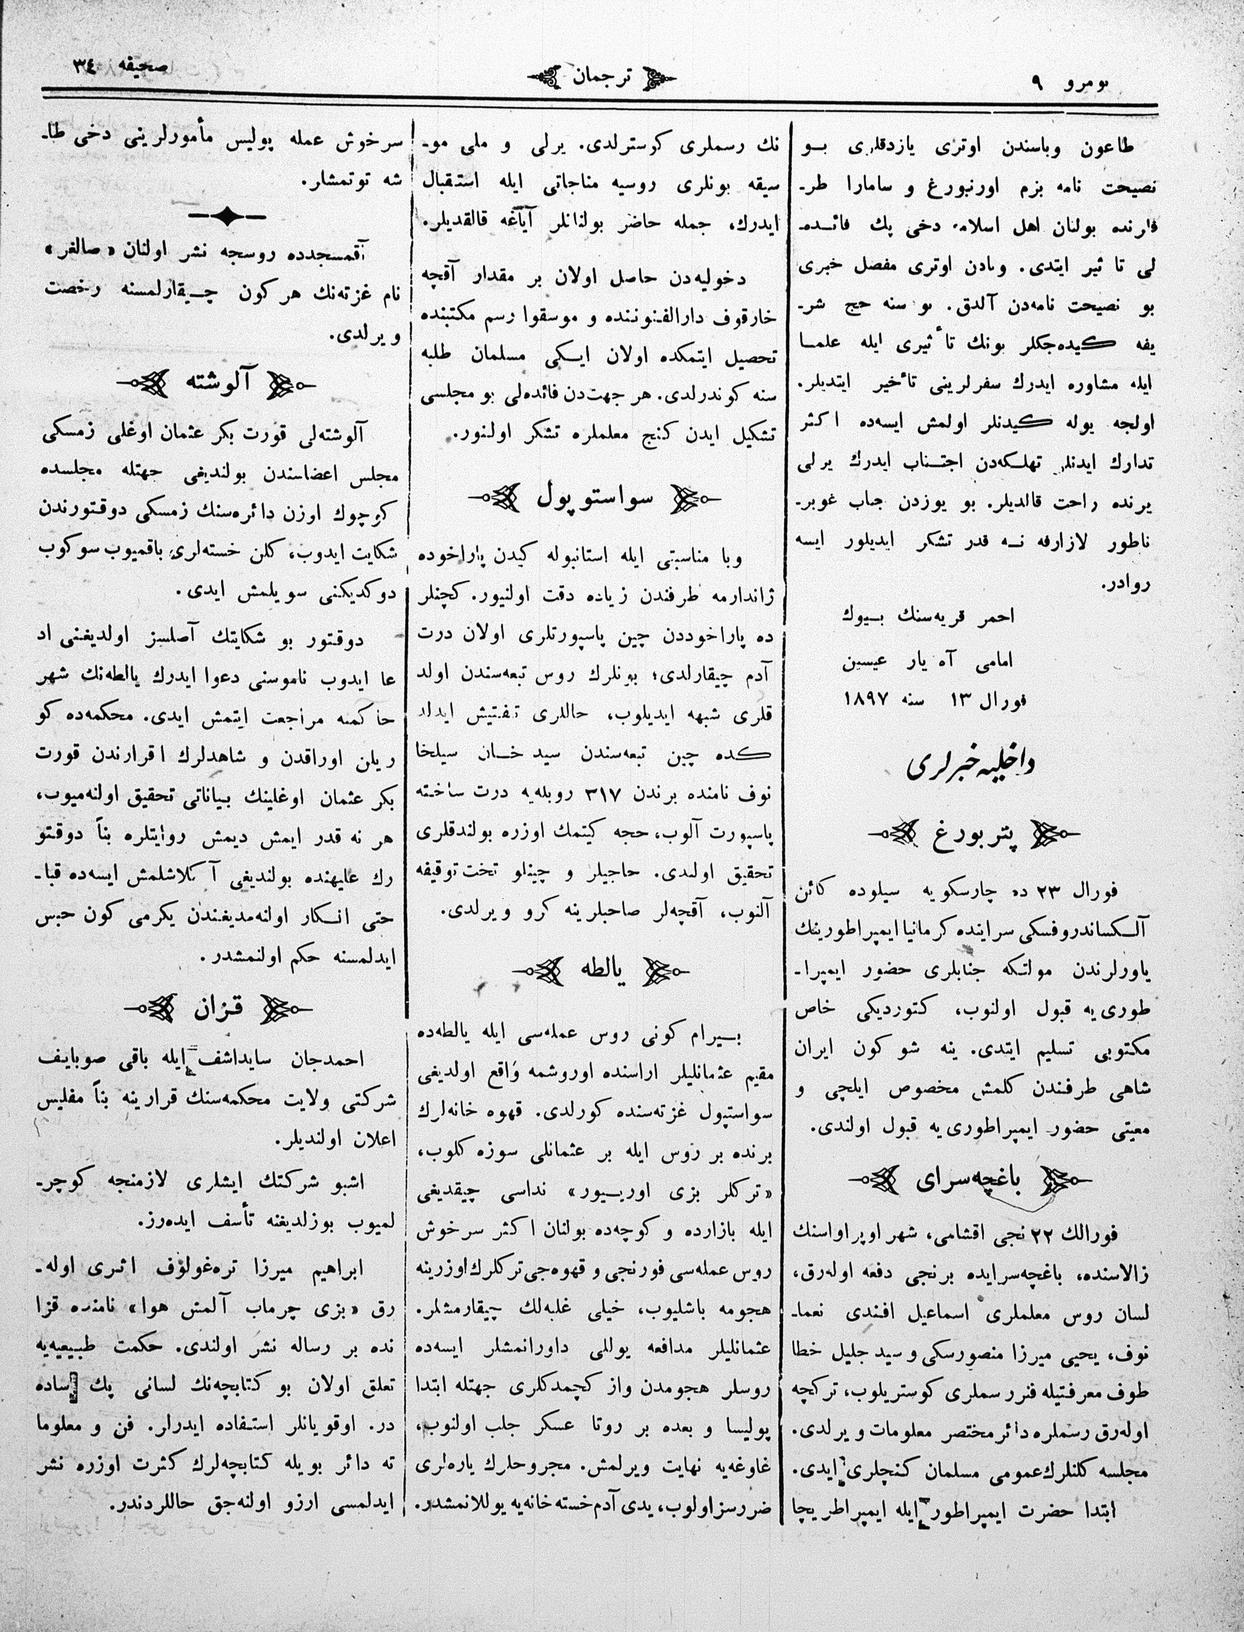 نومرو ٩
ترجمان
صحیفه ٣٤
طاعون وباسندن اوتری یازدقلری بـو
نصیحت نامه بزم اورنبورغ و سامارا طر-
فلرنده بولنان اهل اسلامه دخی پك فائـده-
لی تا ثیر ایتدی. وبادن اوتری مفصل خبری
بو نصیحت نامه‌دن آلدق. بو سنه حج شر-
یفه كیده‌جكلر بونك تأثیری ایله علمـا
ایله مشاوره ایدرك سفرلرینی تأخیر ایتدیلر.
اولجه یوله كیدنلر اولمش ایسه‌ده اكثر
تدارك ایدنلر تهلـكه‌دن اجتناب ایدرك یرلی
یرنده راحت قالدیلر. بو یوزدن جناب غوبر-
ناطور لازارفه نـه قدر تشكر ایدیلور ایسه
روادر.
احمر قریه‌سنك بـیوك
امامی آه یار عیسین
فورال ١٣ سنه ١٨٩٧
داخلیه خبرلری
پتربورغ
فورال ٢٣ ده چارسكویه سیلوده كائن
آلـكساندروفسكی سراینده كرمانیا ایمپراطورینك
یاورلرندن مولتكه جنابلری حضور ایمپرا-
طوری‌یه قبول اولنوب، كتوردیكی خاص
مكتوبی تسلیم ایتدی. ینه شو كون ایران
شاهی طرفندن كلمش مخصوص ایلچی و
معیتی حضور ایمپراطوری‌یه قبول اولندی.
باغچه‌سرای
فورالك ٢٢ نجی اقشامی، شهر اوپراواسنك
زالاسنده، باغچه‌سرایده برنجی دفعه اوله‌رق،
لسان روس معلملری اسماعیل افندی نعما-
نوف، یحیی میرزا منصورسكی و سید جلیل خطا
طوف معرفتیله فنر رسملری كوستریلوب، تركچه
اوله‌رق رسملره دائر مختصر معلومات ویرلدی.
مجلسه كلنلرك عمومی مسلمان كنجلری ایدی.
ابتدا حضرت ایمپراطور ایله ایمپراطریچا
نك رسملری كوسترلدی. یرلی و ملی مو-
سیقه بونلری روسیه مناجاتی ایله استقبال
ایدرك، جمله حاضر بولنانلر آیاغه قالقدیلر.
دخولیه‌دن حاصل اولان بر مقدار آقچه
خارقوف دارالفنوننده و موسقوا رسم مكتبنده
تحصیل ایتمكده اولان ایـكی مسلمان طلبه
سنه كوندرلدی. هر جهت‌دن فائده‌لی بو مجلسی
تشكیل ایدن كنج معلملره تشكر اولنور.
سواستوپول
وبا مناسبتی ایله استانبوله كیدن پاراخوده
ژاندارمه طرفندن زیاده دقت اولنیور. كچنلر
ده پاراخوددن چین پاسپورتلری اولان درت
آدم چیقارلدی؛ بونلرك روس تبعه‌سندن اولد
قلری شبهه ایدیلوب، حاللری تفتیش ایدلد
كده چین تبعه‌سندن سید خـان سیلخا
نوف نامنده برندن ٣١٧ روبله‌یه درت ساخته
پاسپورت آلوب، حجه كیتمك اوزره بولندقلری
تحقیق اولندی. حاجیلر و چینلو تخت توقیفه
آلنوب، آقچه‌لر صاحبلرینه كرو ویرلدی.
یالطه
بـیرام كونی روس عمله‌سی ایله یالطه‌ده
مقیم عثمانلیلر اراسنده اوروشمه واقع اولدیغی
سواستپول غزته‌سنده كورلدی. قهوه خانه‌لرك
برنده بر روس ایله بر عثمانلی سوزه كلوب،
«تركلر بزی اوریـیور» نداسی چیقدیغی
ایله بازارده و كوچه‌ده بولنان اكثر سرخوش
روس عمله‌سی فورنجی و قهوه‌جی تركلرك اوزرینه
هجومه باشلیوب، خیلی غلبه‌لك چیقارمشلر.
عثمانلیلر مدافعه یوللی داورانمشلر ایسه‌ده
روسلر هجومدن واز كچمدكلری جهتله ابتدا
پولیسا و بعده بر روتا عسكر جلب اولنوب،
غاوغه‌یه نهایت ویرلمش. مجروحلرك یاره‌لری
ضررسز اولوب، یدی آدم خسته خانه‌یه یوللانمشدر.
سرخوش عمله پولیس مأمورلرینی دخی طا-
شه توتمشلر.
آقمسجدده روسجه نشر اولنان «صالغر»
نام غزته‌نك هركون چـیقارلمسنه رخصت
ویرلدی.
آلوشته
آلوشته‌لی قورت بكر عثمان اوغلی زمسكی
مجلس اعضاسندن بولندیغی جهتله مجلسده
كوچوك اوزن دائره‌سنك زمسكی دوقتورندن
شكایت ایدوب، كلن خسته‌لری باقمیوب سوكوب
دوكدیكنی سویلمش ایدی.
دوقتور بو شكایتك آصلسز اولدیغنی اد
عا ایدوب ناموسنی دعوا ایدرك یالطه‌نك شهر
حاكمنه مراجعت ایتمش ایدی. محكمه‌ده كو
ریلن اوراقدن و شاهدلرك اقرارندن قورت
بكر عثمان اوغلینك بیاناتی تحقیق اولنه‌میوب،
هر نه قدر ایمش دیمش روایتلره بنأ دوقتو
رك علیهنده بولندیغی آكلاشلمش ایسه‌ده قبا-
حتی انـكار اولنه‌مدیغندن یكرمی كون حبس
ایدلمسنه حكم اولنمشدر.
قزان
احمدجان سایداشف ایله باقی صوبایف
شركتی ولایت محكمه‌سنك قرارینه بنأ مفلیس
اعلان اولندیلر.
اشبو شركتك ایشلری لازمنجه كوچر-
لمیوب بوزلدیغنه تأسف ایده‌رز.
ابراهیم میرزا تره‌غولوف اثـری اوله-
رق «بزی چرماب آلمش هوا» نامنده قزا
نده بر رساله نشر اولندی. حكمت طبیعیه‌یه
تعلق اولان بو كتابچه‌نك لسانی پك ساده
در. اوقویانلر استـفاده ایدرلر. فن و معلوما
ته دائر بویله كتابچه‌لرك كثرت اوزره نشر
ایدلمسی ارزو اولنه‌جق حاللردندر.